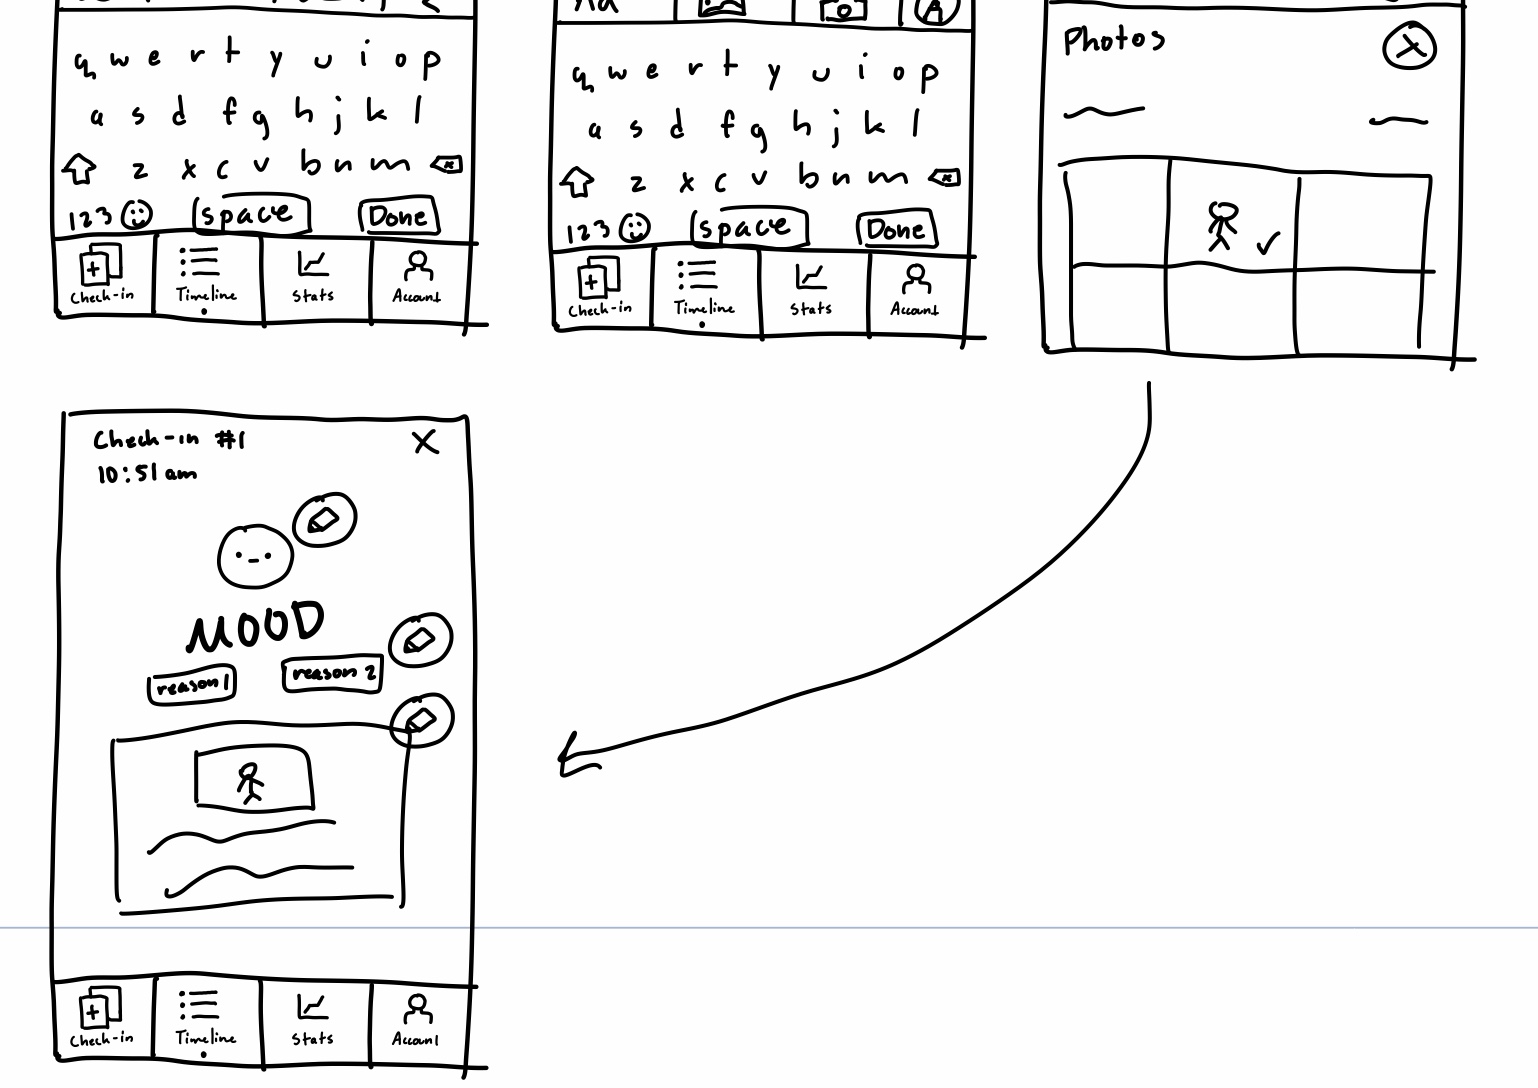 Aa
q w e r t y u i o p
a s d f g h j k l
z x c v b n m
123 space Done
Check-in Timeline Stats Account
q w e r t y u i o p
a s d f g h j k l
z x c v b n m
123 space Done
Check-in Timeline Stats Account
Photos
Check-in #1
10:51 am
MOOD
reason 1 reason 2
Check-in Timeline Stats Account